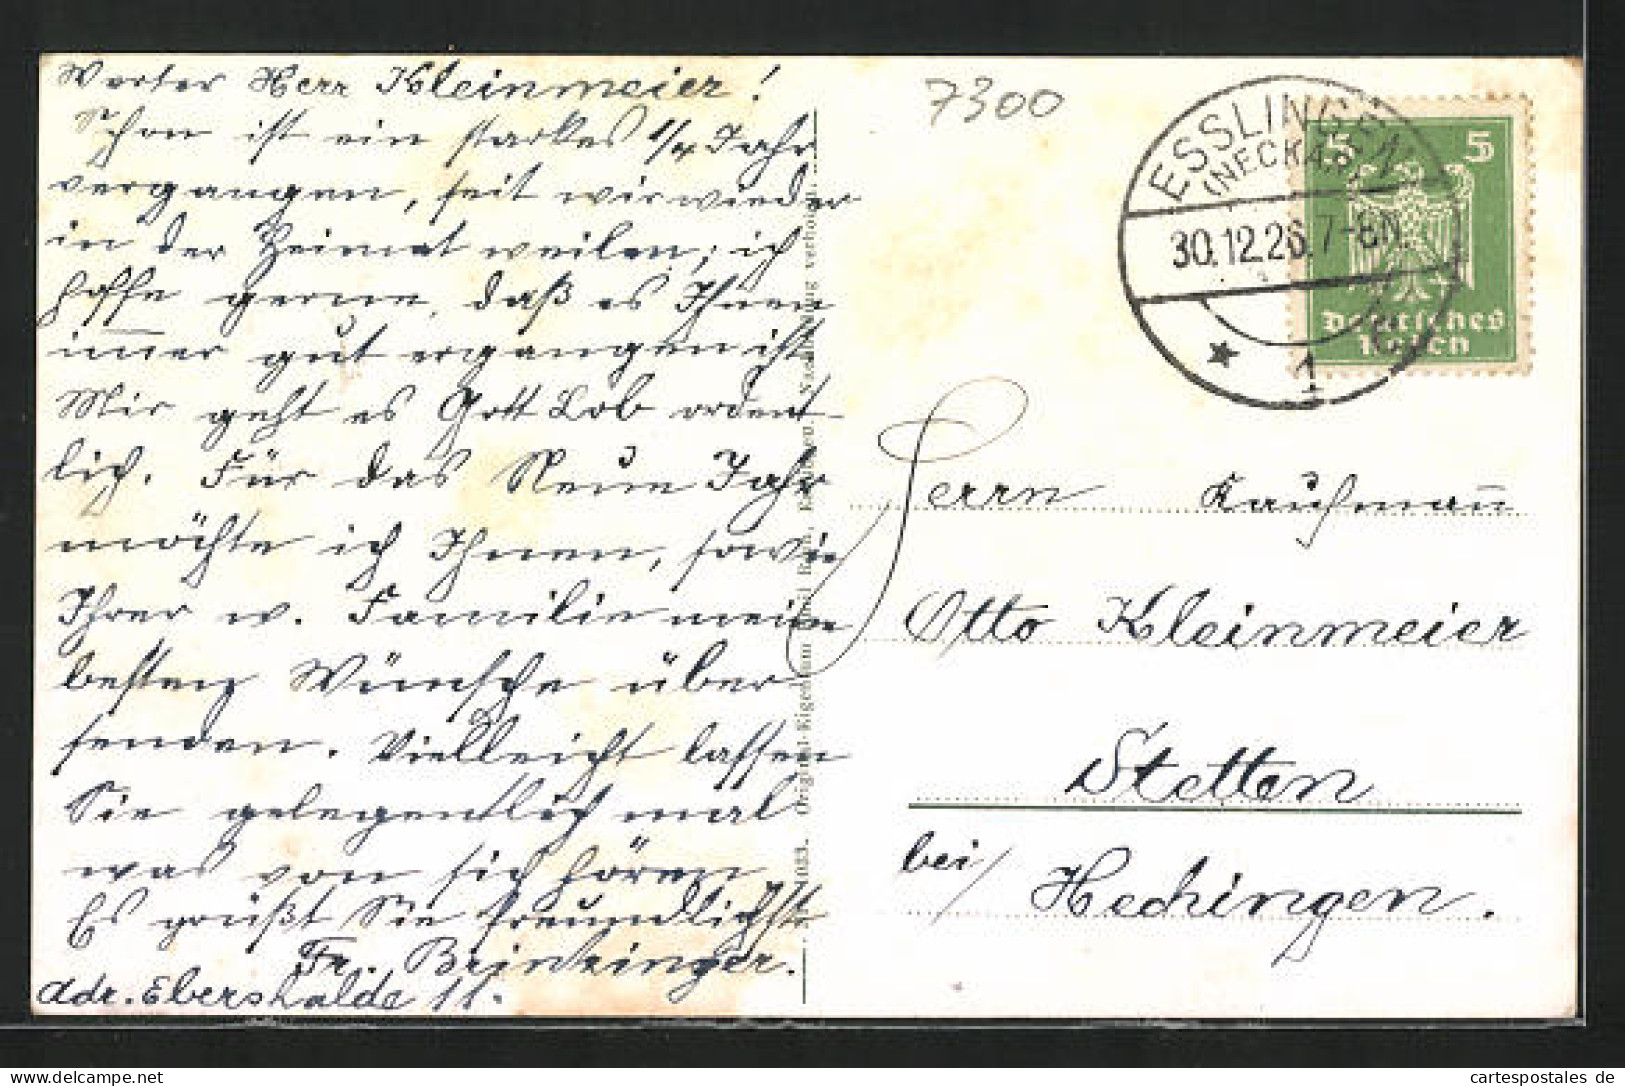 Werter Herr Kleinmeier!
Schon ist ein starkes 1/4 Jahr
vergangen, seit wir wieder
in der Heimat weilen; ich
hoffe gerne, daß es Ihnen
im̅er gut ergangen ist.
Mir geht es Gott Lob ordent-
lich. Für das Neue Jahr
möchte ich Ihnen, sowie
Ihrer w. Familie meine
besten Wünsche über-
senden. Vielleicht lassen
Sie gelegentlich mal
was von sich hören
Es grüßt Sie freundlichst
Fr. Brinzinger.
Adr. Ebershalde 11.
Original-Eigentum Emil
verboten
7300
ESSLINGEN
(NECKAR)
30.12.26.7-8N.
★ 1
5 5
Deutsches
Reich
Herrn Kaufman̅
Otto Kleinmeier
Stetten
bei/ Hechingen.
cartespostales de